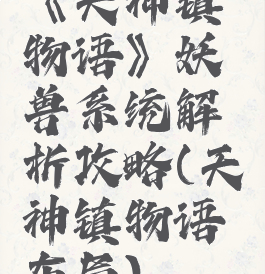 《天神镇
物语》妖
兽系统解
析攻略(天
神镇物语